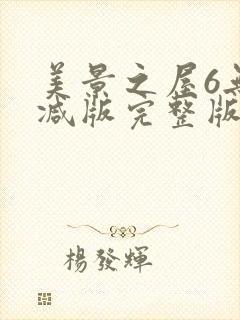 美景之屋6无
减版完整版
楊發輝